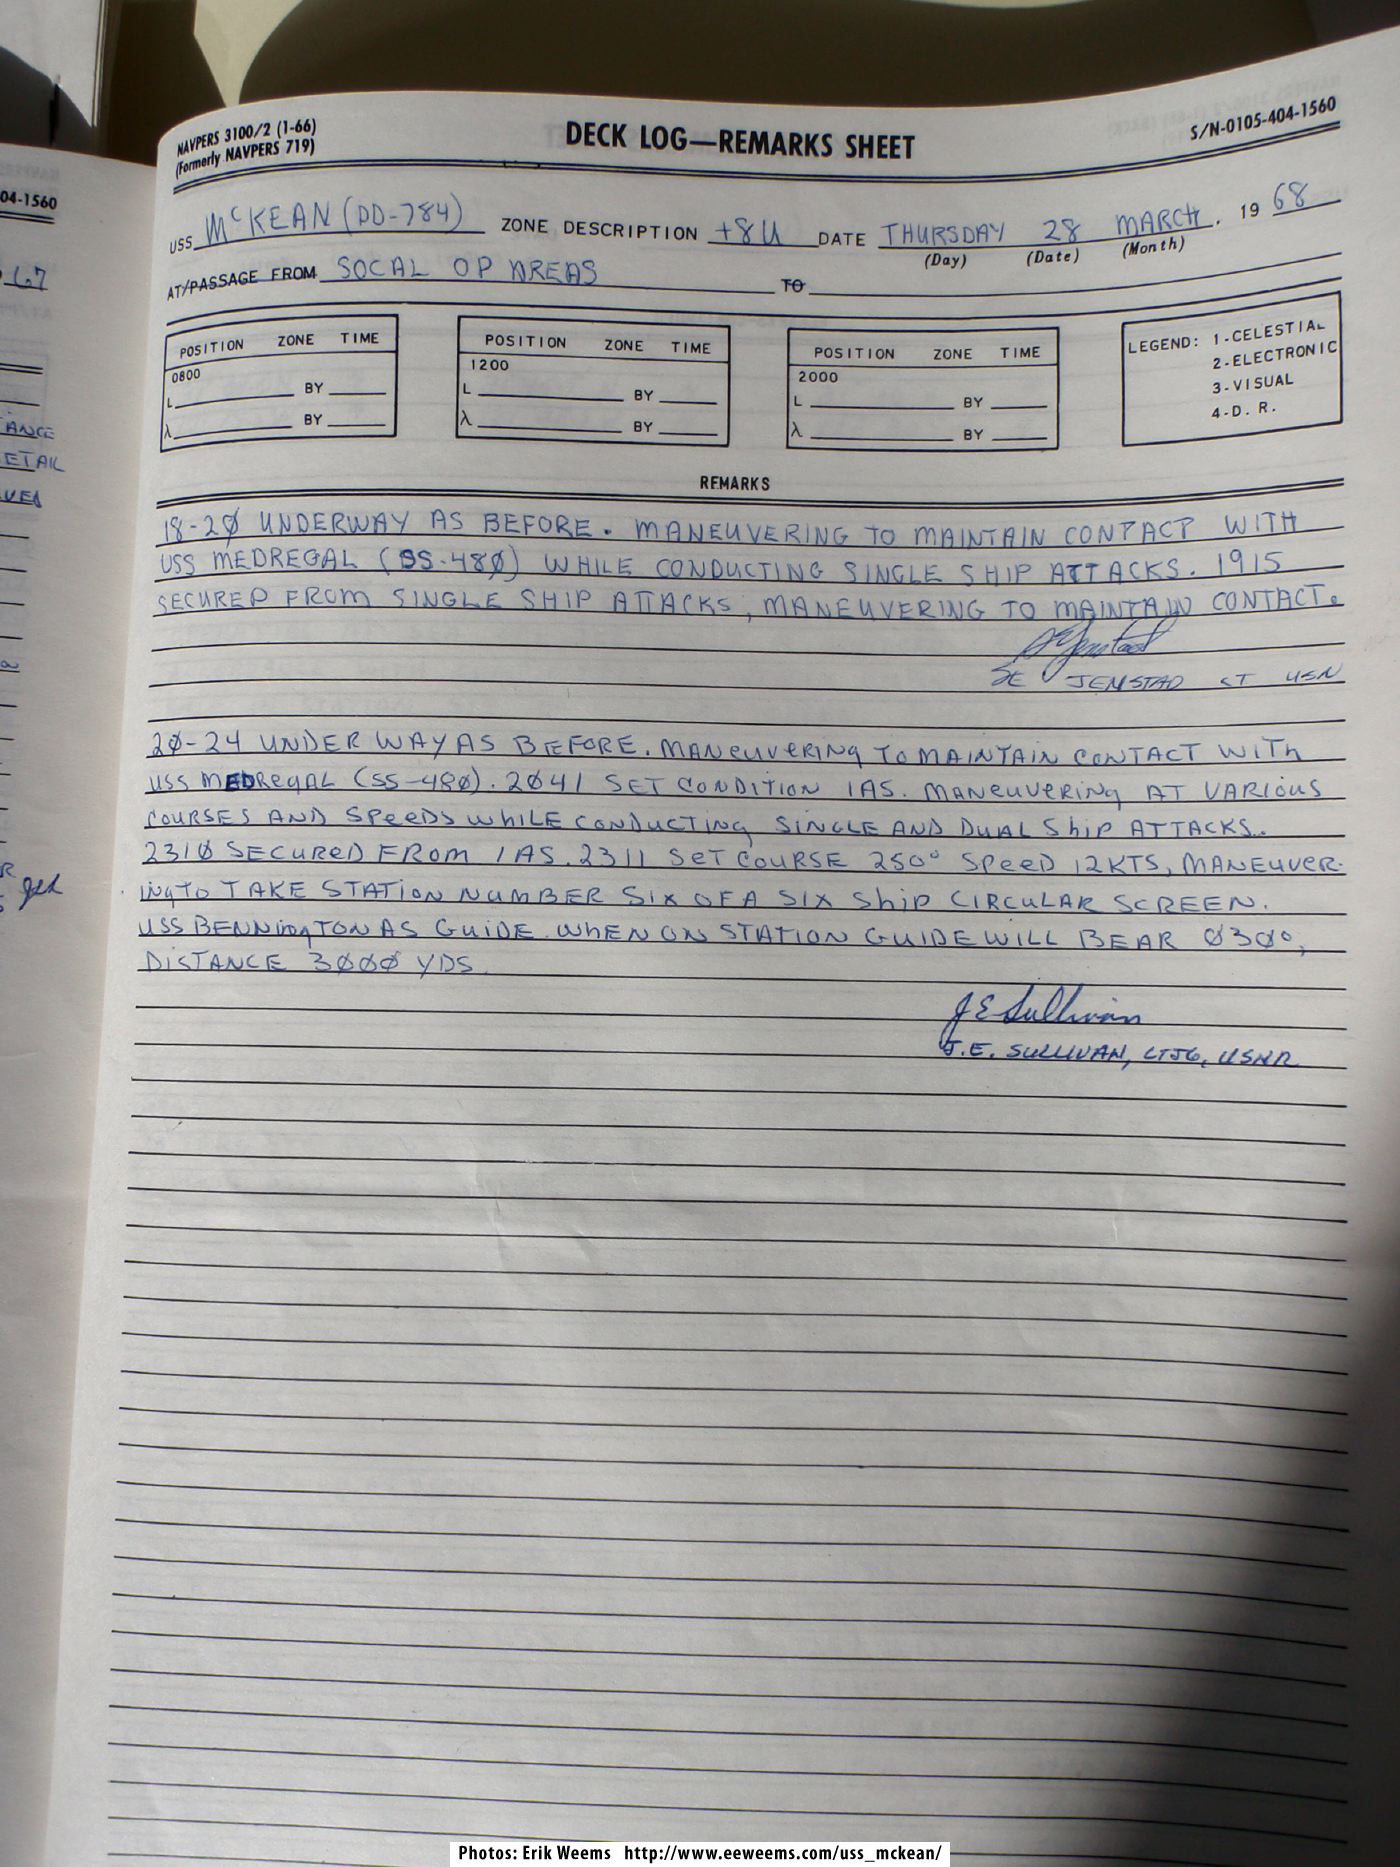 NAVPERS 3100/2 (1-66)
(Formerly NAVPERS 719)
DECK LOG—REMARKS SHEET
S/N-0105-404-1560
USS McKEAN (DD-784) ZONE DESCRIPTION +8U DATE THURSDAY 28 MARCH, 19 68
(Day) (Date) (Month)
AT/PASSAGE FROM SOCAL OP AREAS TO
POSITION ZONE TIME
0800
L BY
λ BY
POSITION ZONE TIME
1200
L BY
λ BY
POSITION ZONE TIME
2000
L BY
λ BY
LEGEND: 1-CELESTIAL
2-ELECTRONIC
3-VISUAL
4-D. R.
REMARKS
18-2Ø UNDERWAY AS BEFORE. MANEUVERING TO MAINTAIN CONTACT WITH
USS MEDREGAL (SS-48Ø) WHILE CONDUCTING SINGLE SHIP ATTACKS. 1915
SECURED FROM SINGLE SHIP ATTACKS, MANEUVERING TO MAINTAIN CONTACT.
SE JEMSTAD LT USN
2Ø-24 UNDER WAY AS BEFORE. MANEUVERING TO MAINTAIN CONTACT WITH
USS MEDREGAL (SS-48Ø). 2Ø41 SET CONDITION 1AS. MANEUVERING AT VARIOUS
COURSES AND SPEEDS WHILE CONDUCTING SINGLE AND DUAL SHIP ATTACKS.
231Ø SECURED FROM 1AS. 2311 SET COURSE 250° SPEED 12KTS, MANEUVER-
ING TO TAKE STATION NUMBER SIX OF A SIX SHIP CIRCULAR SCREEN.
USS BENNINGTON AS GUIDE. WHEN ON STATION GUIDE WILL BEAR Ø3Ø°,
DISTANCE 3ØØØ YDS.
JE Sullivan
J.E. SULLIVAN, LTJG, USNR
04-1560
67
ANCE
ETAIL
VED
Photos: Erik Weems http://www.eeweems.com/uss_mckean/